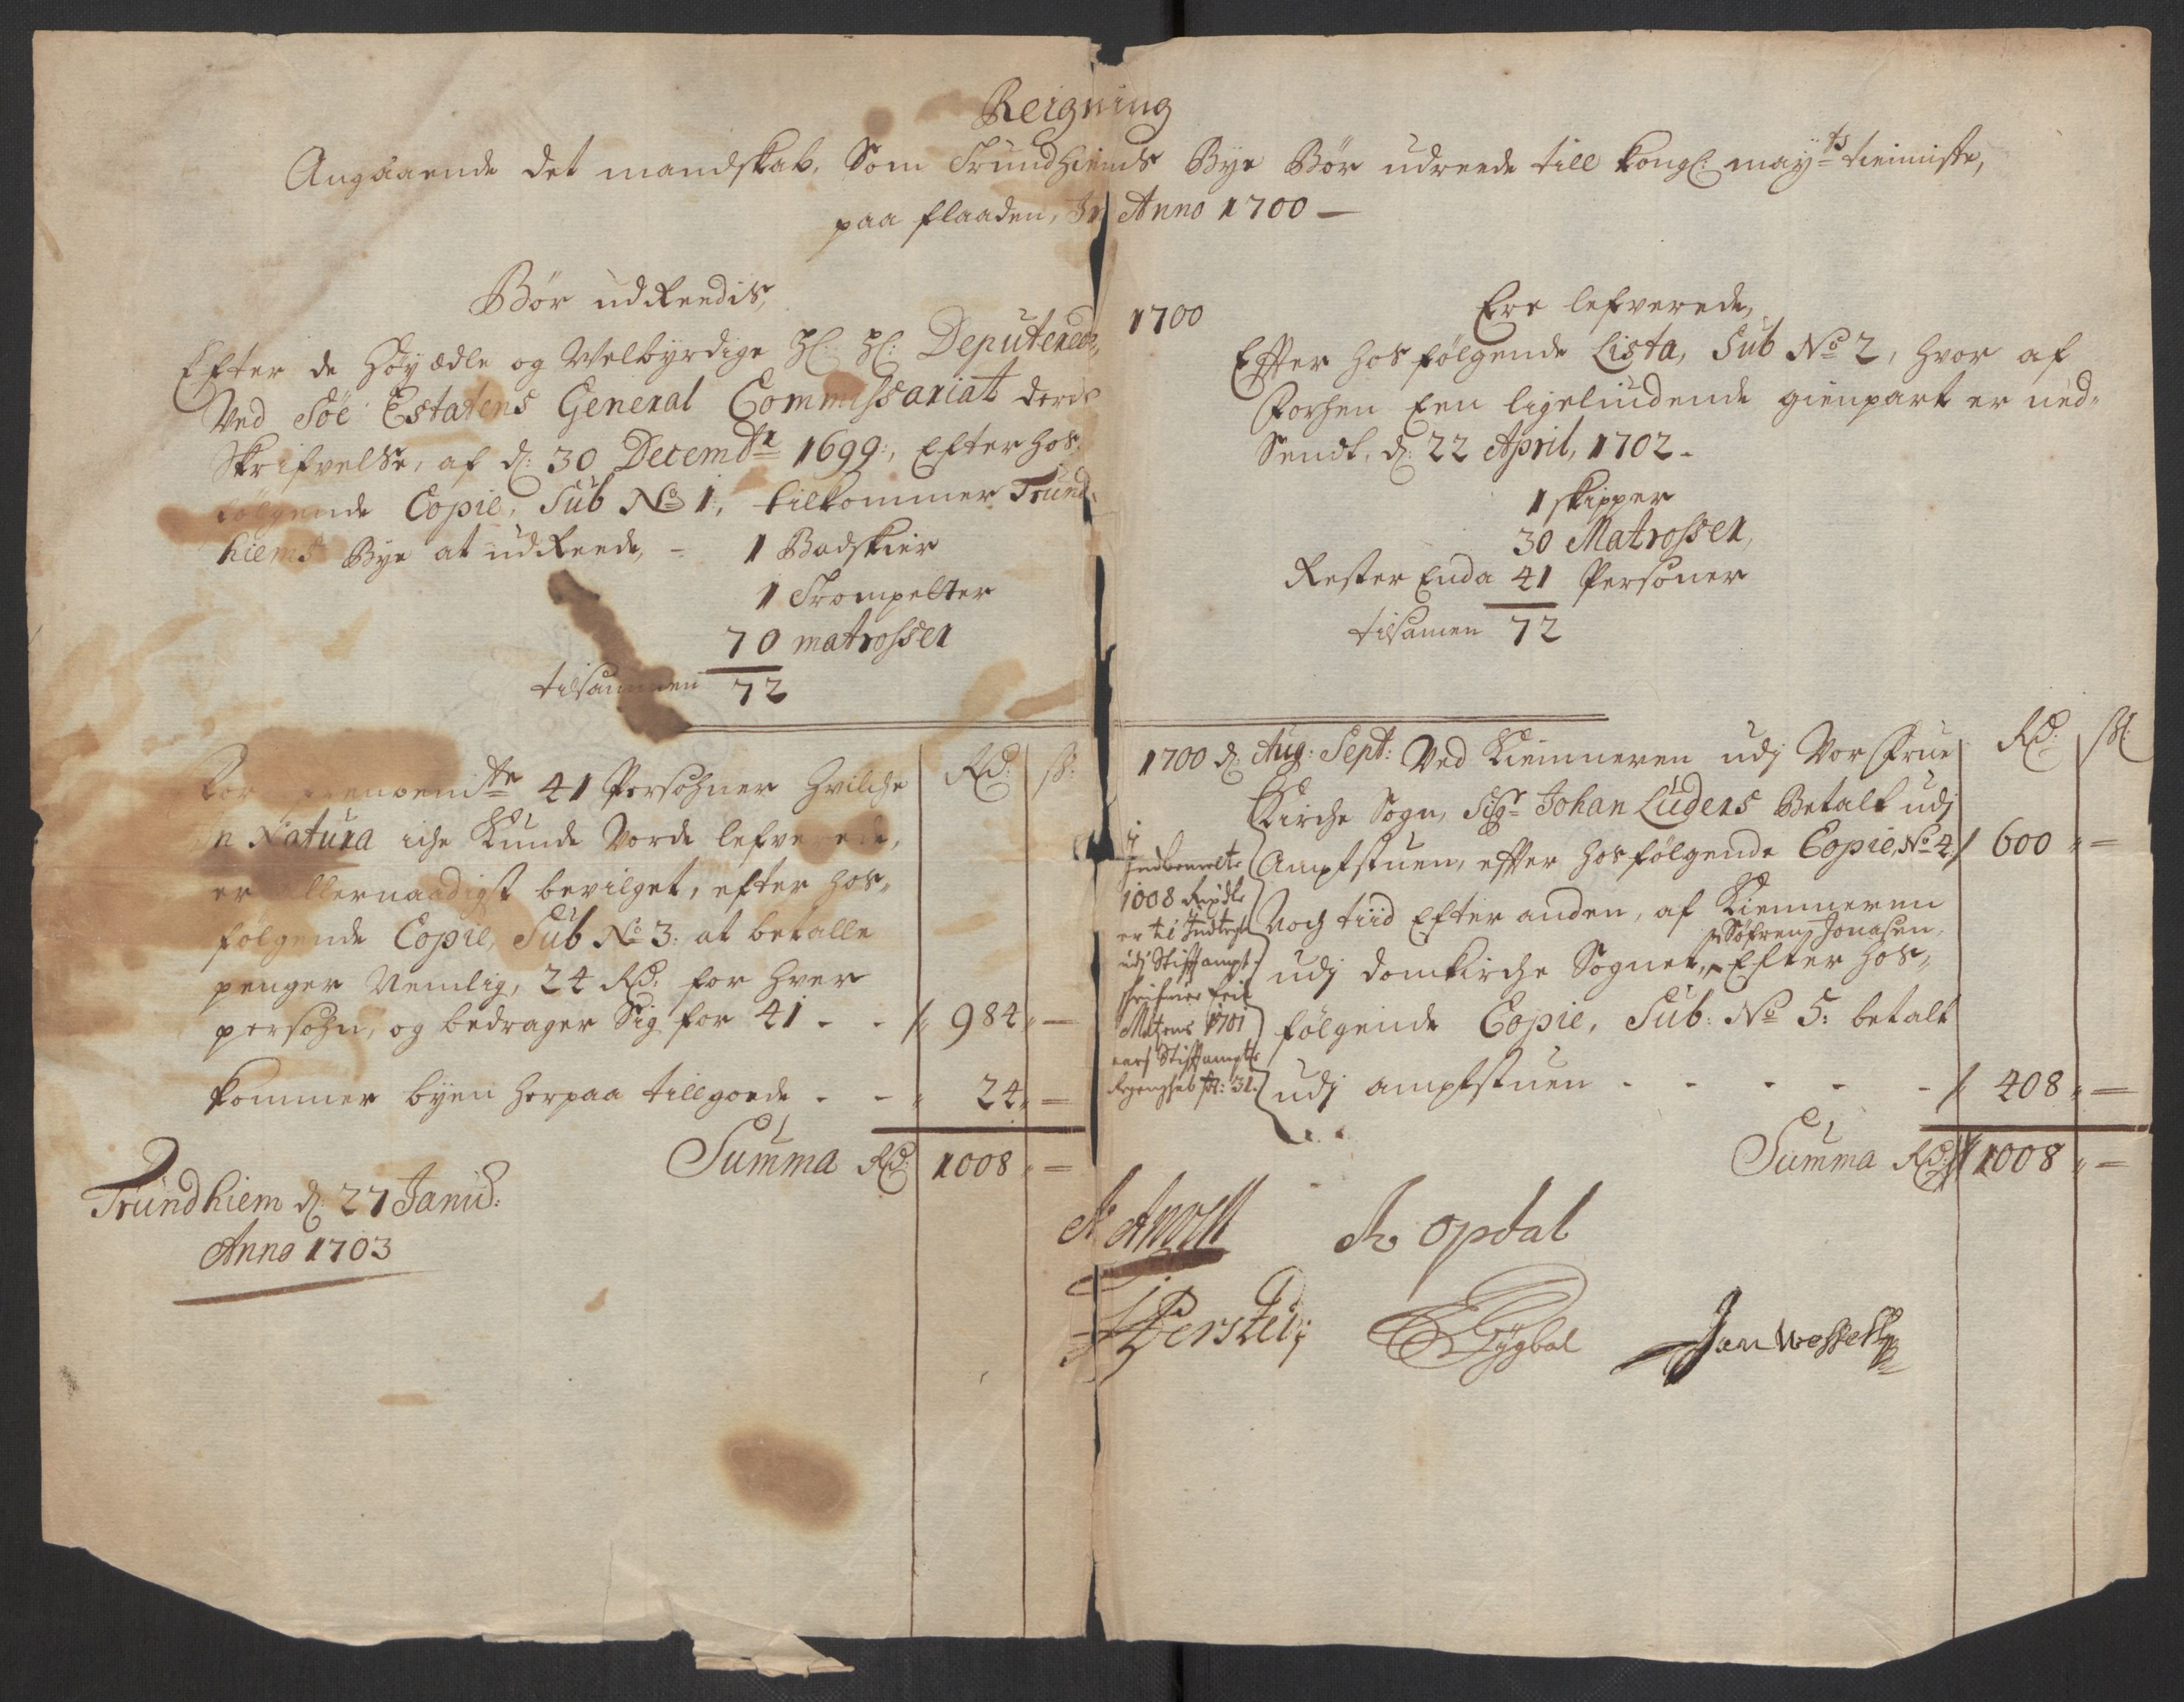 Reigning
Angaaende det mandskab, Som Trundhiems Bye Bør udreede till kongl: may:ts tienniste,
paa flaaden, In Anno 1700 —
Bør udReedis,
Efter de Høyædle og Welbyrdige H: H: Deputerede,
Ved Söe Estatens General Commissariat derds
Skrifvelse, af d: 30 Decembr 1699:, Efter hos,
følgende Copie, Sub No 1:, tilkommer Trund,
hiems Bye at udReede, - 1 Badskier
1 Trompetter
70 matrossen
tilsammen 72
For benente 41 Persohner hvilche Rd: ss:
in Natura iche Kunde Vorde lefverede,
er allernaadigst bevilget, efter hos,
følgende Copie, Sub No 3: at betalle
penger Nemlig, 24 Rd: for hver
persohn, og bedrager Sig for 41 - - 984 „ —
kommer byen herpaa tillgoede - - 24 „ —
Summa Rd: 1008 „ —
Trundhiem d: 27 Janu:
Anno 1703
1700
Ere lefverede,
Effter hosfølgende Lista, Sub No 2, hvor af
Forhen Een ligeliudende gienpart er ned,
Sendt, d: 22 April, 1702 -
1 skipper
30 Matrossen,
Rester Enda 41 Personer
tilsamen 72
1700 d: Aug: Sept: Ved Kiemneren udj Vor Frue Rd: ss:
Kirche Sogn, Sigr Johan Lüders Betalt udj
Amptstuen, effter hosfølgende Copie, No 4 / 600 „ —
Noch tiid Efter anden, af Kiemneren
Søfren Jonasen,
udj domkirche Sognet, Efter hos,
følgende Copie, Sub: No 5: betalt
udj amptstuen - - - - - / 408 „ —
Summa Rd: 1008 „ —
1008 Rixdlr
er til Indtegt
udj Stiftampt,
schrifver
1701
aars Stiftampts
Regenschab fol: 31.
Opdal
Jan Wessell